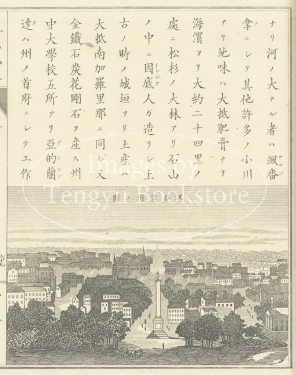 ナリ河ノ大ナル者ハ颯番
拿ニシテ其他許多ノ小川
アリ地味ハ大抵肥膏ナリ
海濱ヨリ大約二十四里ノ
處ニ松杉ノ大林アリ石山
ノ中ニ因底人ガ造リシ上
古ノ時ノ城垣アリ土産ハ
大抵南加羅里那ニ同ク又
金鐵石炭花剛石ヲ産ス州
中大學校五所アリ亞的蘭
達ハ州ノ首府ニシテ工作
Images by
Tengyu Bookstock